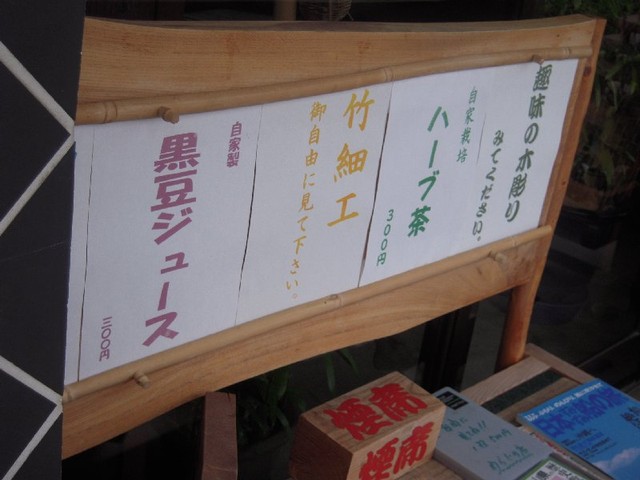 趣味の木彫り
みてください。
自家栽培
ハーブ茶
300円
竹細工
御自由に見て下さい。
自家製
黒豆ジュース
三〇〇円
煙席
煙席